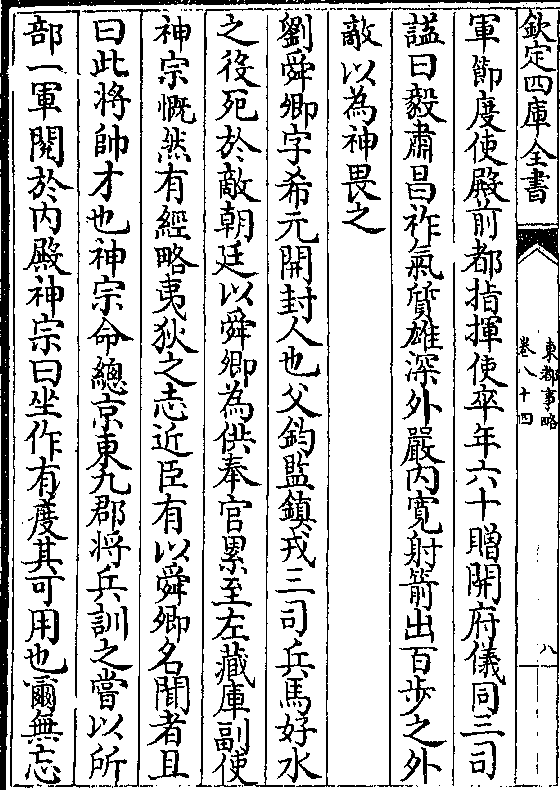 欽定四庫全書
東都事略
卷八十四
八
軍節度使殿前都指揮使卒年六十贈開府儀同三司
諡曰毅肅昌祚氣質雄深外嚴内寛射箭出百步之外
敵以為神畏之
劉舜卿字希元開封人也父鈞監鎮戎三司兵馬好水
之役死於敵朝廷以舜卿為供奉官累至左藏庫副使
神宗慨然有經略夷狄之志近臣有以舜卿名聞者且
曰此將帥才也神宗命總京東九郡將兵訓之嘗以所
部一軍閱於内殿神宗曰坐作有度其可用也爾無忘